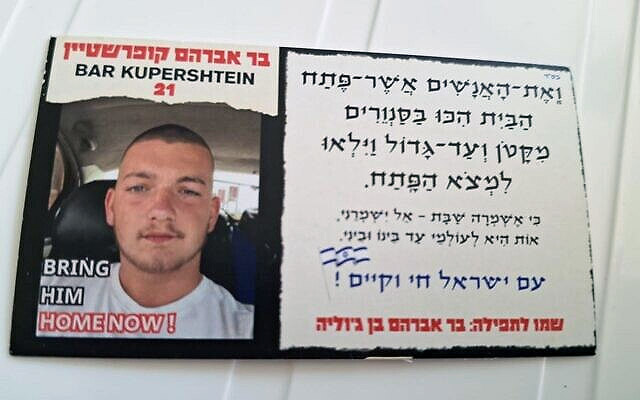 בר אברהם קופרשטיין
BAR KUPERSHTEIN
21
BRING
HIM
HOME NOW !
בס״ד
וְאֶת-הָאֲנָשִׁים אֲשֶׁר-פֶּתַח
הַבַּיִת הִכּוּ בַּסַּנְוֵרִים
מִקָּטֹן וְעַד-גָּדוֹל וַיִּלְאוּ
לִמְצֹא הַפָּתַח.
כי אשמרה שבת - אל ישמרני.
אות היא לעולמי עד בינו וביני.
עם ישראל חי וקיים !
שמו לתפילה: בר אברהם בן ג׳וליה